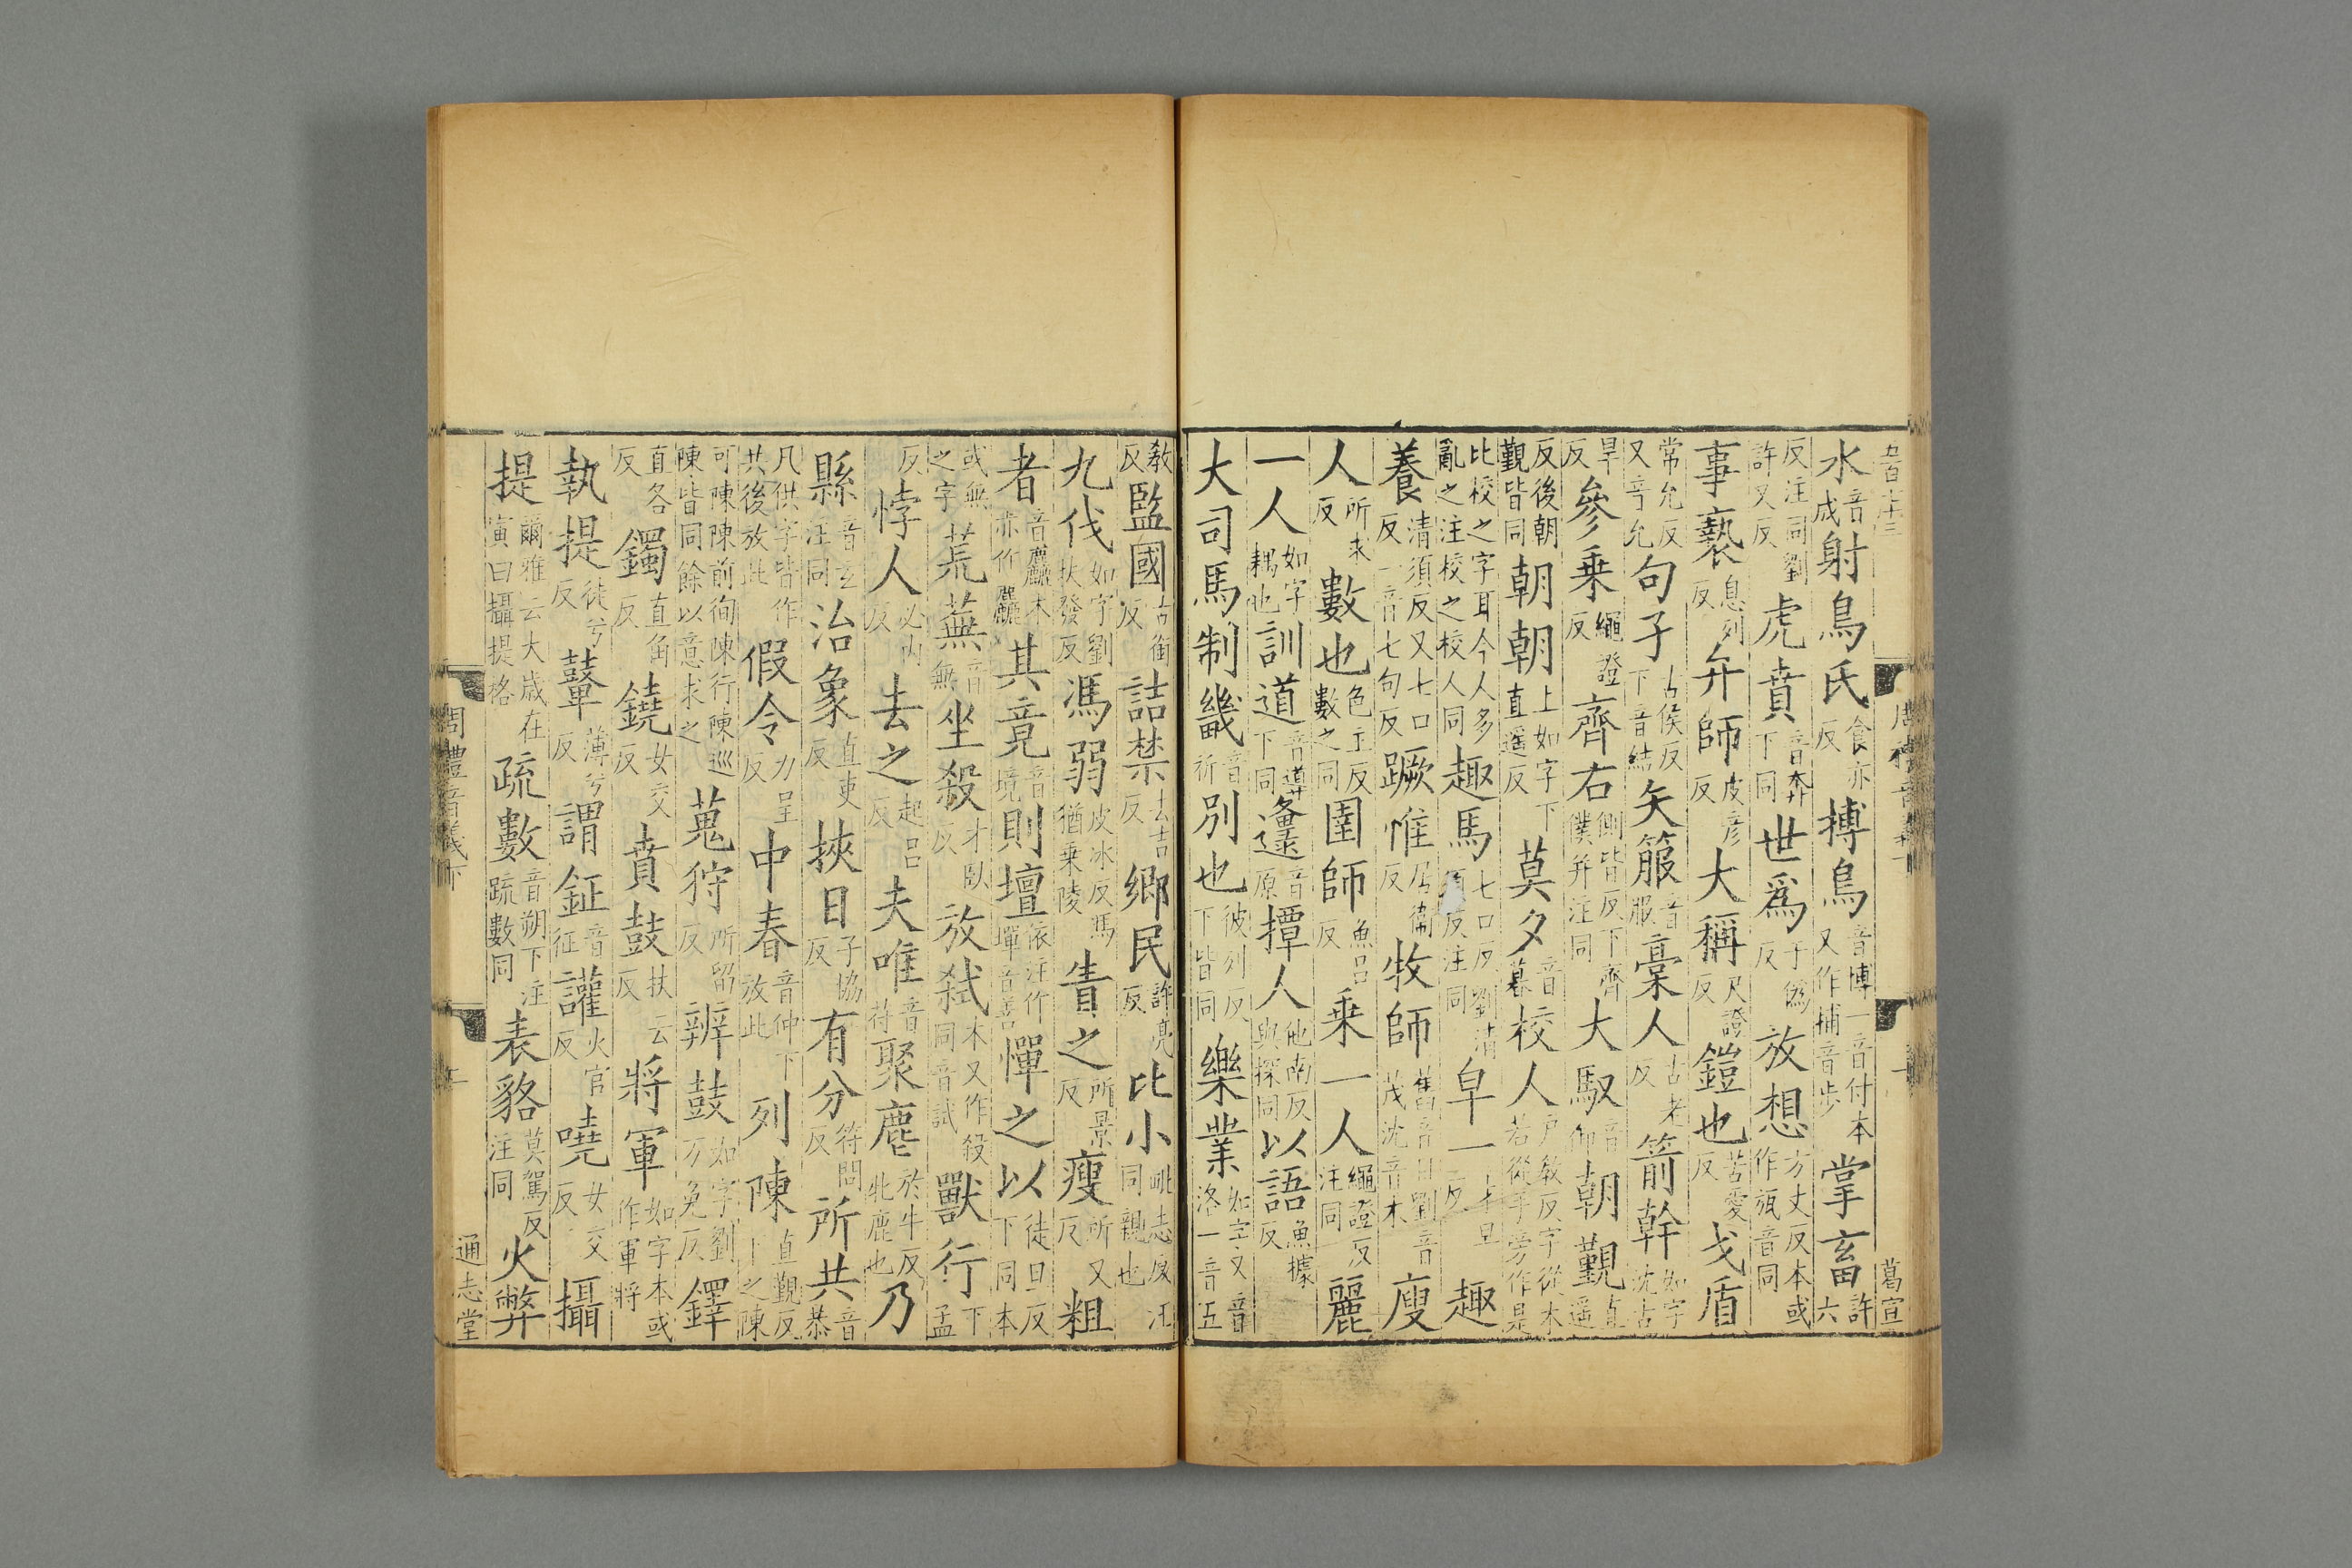 水音成射鳥氏食亦反搏鳥音博一音付本又作捕音步掌畜許六
反注同劉許又反虎賁音奔下同世爲于僞反放想方丈反本或作瓬音同
事褻息列反弁師皮彦反大稱尺證反鎧也苦愛反戈盾
常允反又音允句子古侯反下音結矢箙音服槀人古老反箭幹如字沈古
旱反參乘繩證反齊右側皆反下齊僕并注同大馭音御朝覲直遥
反後朝覲皆同朝朝上如字下直遥反莫夕音暮校人户教反字從木若從手旁作是
比校之字耳今人多亂之注校之校人同趣馬七口反劉清須反注同皁一才旦反趣
養清須反又七口反一音七句反蹶惟居衞反牧師舊音目劉音茂沈音木廋
人所求反數也色主反數之同圉師魚吕反乘一人繩證反注同麗
一人如字耦也訓道音導下同邍音原撢人他南反與探同以語魚據反
大司馬制畿音祈别也彼列反下皆同樂業如字又音洛一音五
教反監國古銜反詰禁去吉反鄉民許亮反比小毗志反注同親也
九伐如字劉扶發反馮弱皮冰反馮猶乗陵眚之所景反瘦所又反粗
者音麤本亦作麤其竟音境則壇依注作墠音善憚之以徒旦反下同本
或無之字荒蕪音無坐殺才卧以放弑本又作殺同音試獸行下孟
反悖人必内反去之起吕反夫唯音符聚麀於牛反牝鹿也乃
縣音玄注同治象直吏反挾日子協反有分符問反所共音恭
凡供字皆作共後放此假令力呈反中春音仲下放此列陳直覲反下之陳
可陳陳前徇陳行陳巡陳皆同餘以意求之蒐狩所留反辨鼓如字劉方免反鐸
直各反鐲直角反鐃女交反賁鼓扶云反將軍如字本或作軍將
執提徒兮反鼙薄兮反謂鉦音征讙火官反嘵女交反攝
提爾雅云大歲在寅曰攝提格疏數音朔下注疏數同表貉莫駕反注同火弊
葛宣
周禮音義下
通志堂